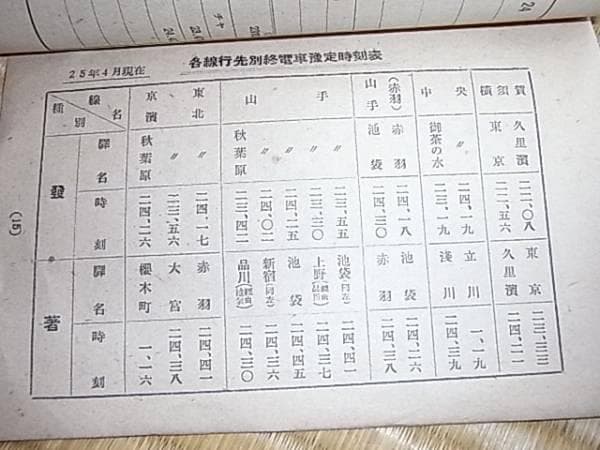 24
チヤ
25年4月現在
各線行先別終電車豫定時刻表
線名 種別 京濱 東北 山手 山手(赤羽) 中央 横須賀
發 驛名 秋葉原 〃 〃 秋葉原 〃 〃 〃 〃 池袋 赤羽 御茶の水 〃 東京 久里濱
時刻 二四、二六 二三、五六 二四、一七 二三、四二 二四、〇二 二四、二五 二三、三〇 二三、五五 二四、三〇 二四、一八 二三、一九 二四、一九 二二、五六 二二、〇八
著 驛名 櫻木町 大宮 赤羽 品川 新宿(同左) 池袋 上野 池袋(同左) 赤羽 池袋 淺川 立川 久里濱 東京
時刻 一、一六 二四、三八 二四、四一 二四、三〇 二四、三六 二四、四五 二四、三七 二四、四一 二四、三八 二四、三九 一、一九 二三、三三
(15)